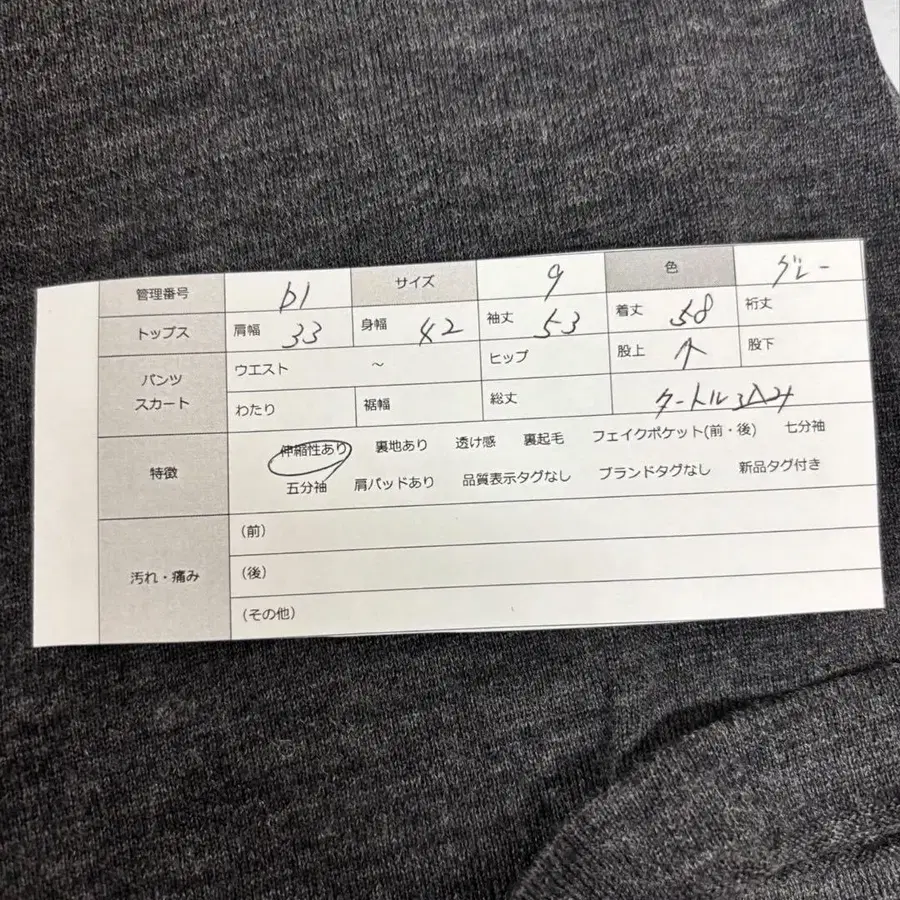 管理番号 b1 サイズ 9 色 グレー
トップス 肩幅 33 身幅 42 袖丈 53 着丈 58 裄丈
パンツ スカート ウエスト ～ ヒップ 股上 ↑ 股下
わたり 裾幅 総丈 タートル込み
特徴 伸縮性あり 裏地あり 透け感 裏起毛 フェイクポケット(前・後) 七分袖
五分袖 肩パッドあり 品質表示タグなし ブランドタグなし 新品タグ付き
汚れ・痛み (前)
(後)
(その他)